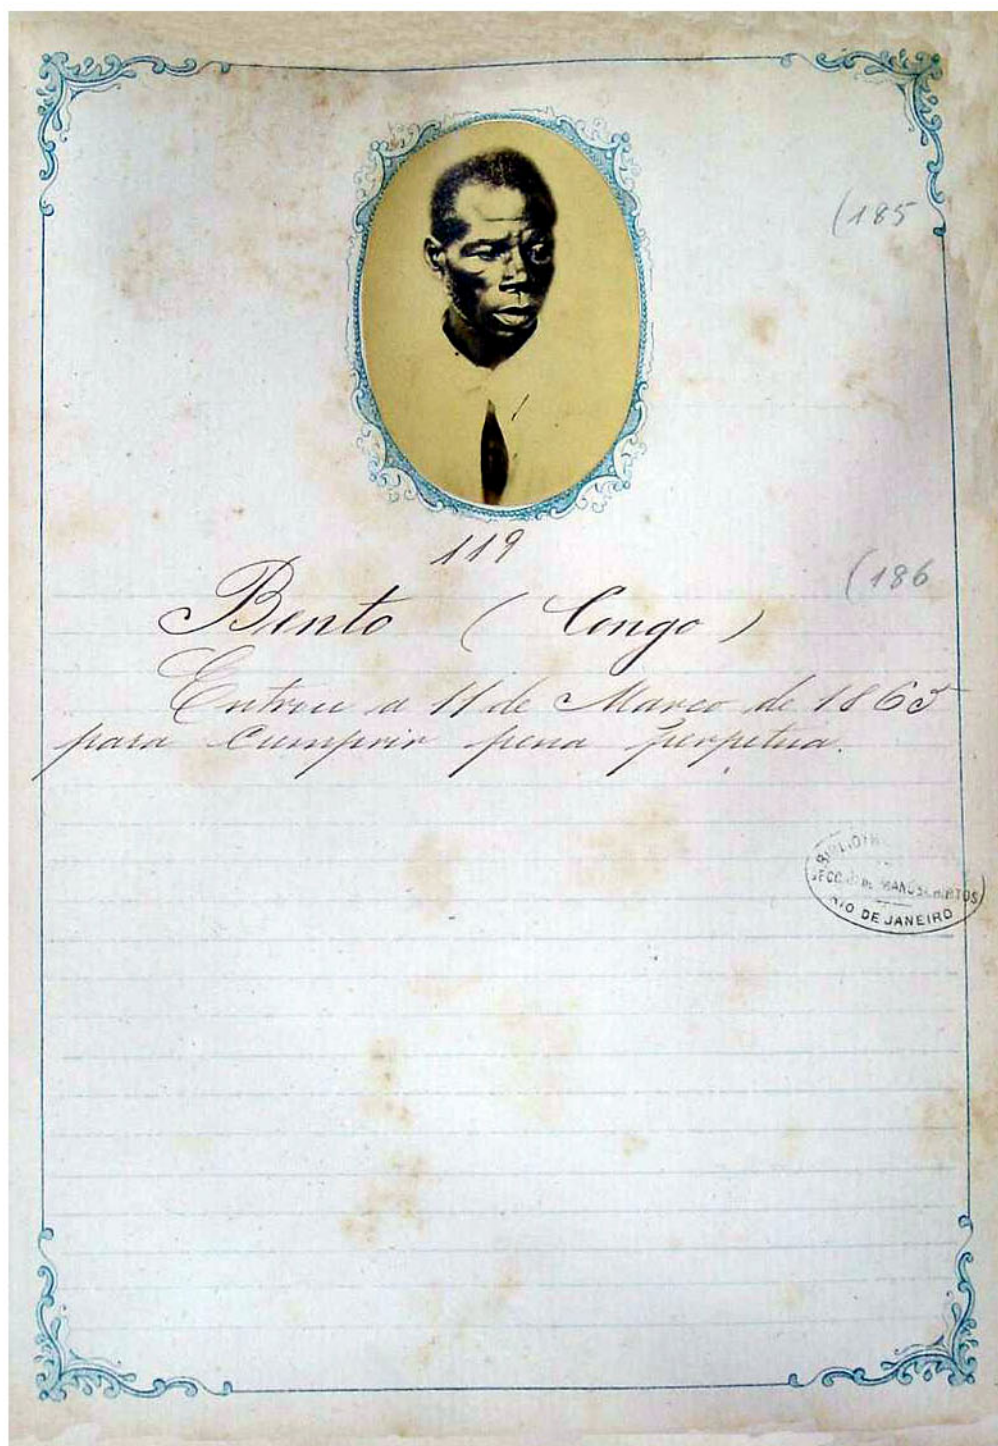 (185
119
(186
Bento ( Congo )
Entrou a 11 de Março de 1865
para Cumprir pena perpetua.
SECÇÃO DE MANUSCRIPTOS
RIO DE JANEIRO